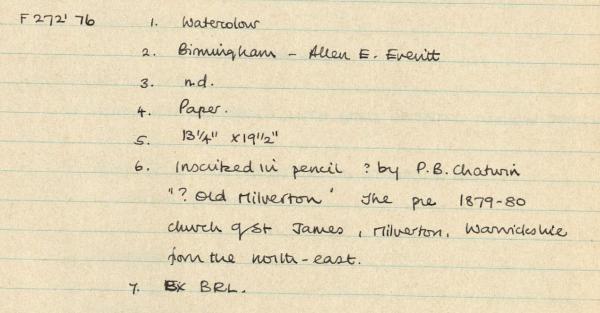 F272' 76 1. Watercolour
2. Birmingham - Allen E. Everitt
3. n.d.
4. Paper.
5. 13 1/4" x 19 1/2"
6. Inscribed in pencil ? by P.B. Chatwin
"? Old Milverton" The pre 1879-80
church of St James, Milverton, Warwickshire
from the north-east.
7. Ex BRL.